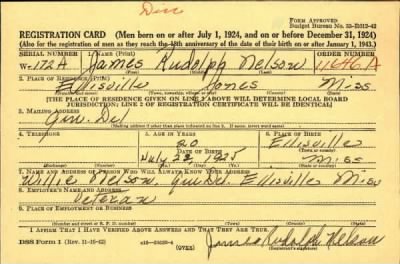 Form Approved
Budget Bureau No. 33-R012-42
REGISTRATION CARD (Men born on or after July 1, 1924, and on or before December 31, 1924)
(Also for the registration of men as they reach the 18th anniversary of the date of their birth on or after January 1, 1943.)
SERIAL NUMBER 1. NAME (Print) ORDER NUMBER
W-172A James Rudolph Nelson 11646A
(First) (Middle) (Last)
2. PLACE OF RESIDENCE (Print)
Ellisville Jones Miss
[THE PLACE OF RESIDENCE GIVEN ON LINE 2 ABOVE WILL DETERMINE LOCAL BOARD
JURISDICTION; LINE 2 OF REGISTRATION CERTIFICATE WILL BE IDENTICAL]
3. MAILING ADDRESS
Gen. Del
[Mailing address if other than place indicated on line 2. If same, insert word same]
4. TELEPHONE 5. AGE IN YEARS 6. PLACE OF BIRTH
20 Ellisville
DATE OF BIRTH
July 22 1925 Miss
7. NAME AND ADDRESS OF PERSON WHO WILL ALWAYS KNOW YOUR ADDRESS
Willie Nelson, Gen Del. Ellisville Miss
8. EMPLOYER'S NAME AND ADDRESS
Veteran
9. PLACE OF EMPLOYMENT OR BUSINESS
(Number and street or R. F. D. number) (Town) (County) (State)
I AFFIRM THAT I HAVE VERIFIED ABOVE ANSWERS AND THAT THEY ARE TRUE.
DSS Form 1 (Rev. 11-16-42) (OVER) James Rudolph Nelson
(Registrant's signature)